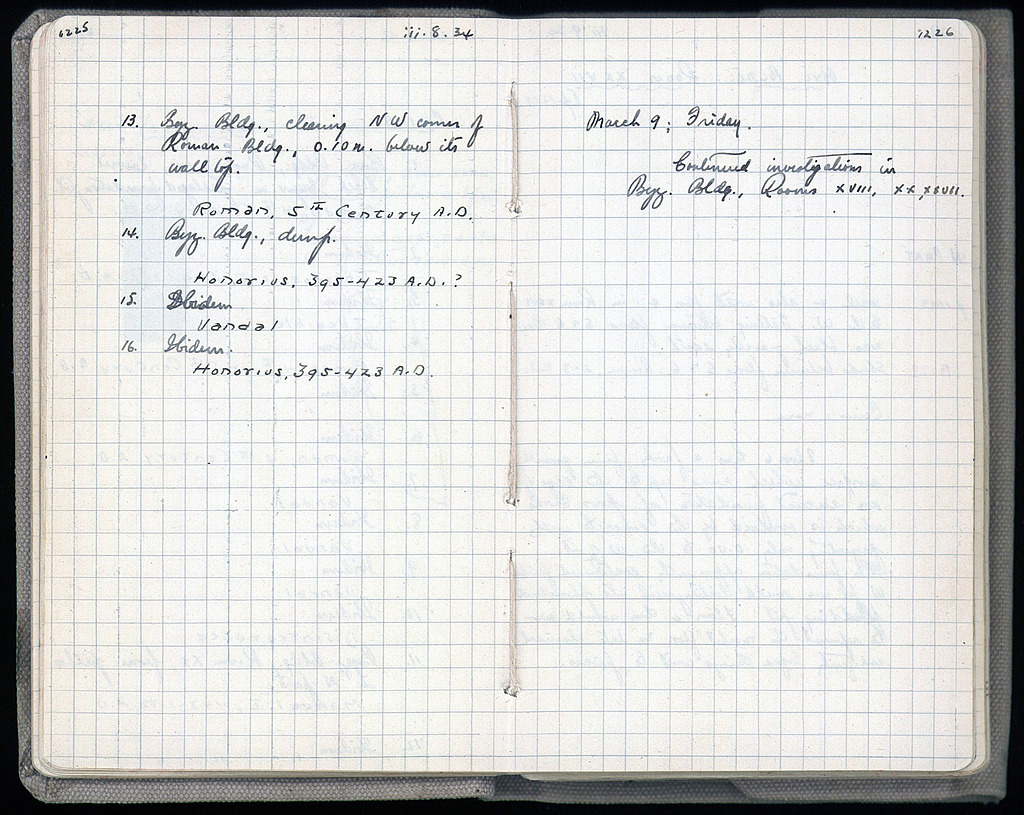 1225
iii.8.34
13. Byz. Bldg., clearing NW corner of
Roman Bldg., 0.10 m. below its
wall top.
Roman, 5th Century A.D.
14. Byz. Bldg., dump.
Honorius, 395-423 A.D.?
15. Ibidem
Vandal
16. Ibidem.
Honorius, 395-423 A.D.
1226
March 9, Friday.
Continued investigations in
Byz. Bldg., Rooms XVIII, XX,